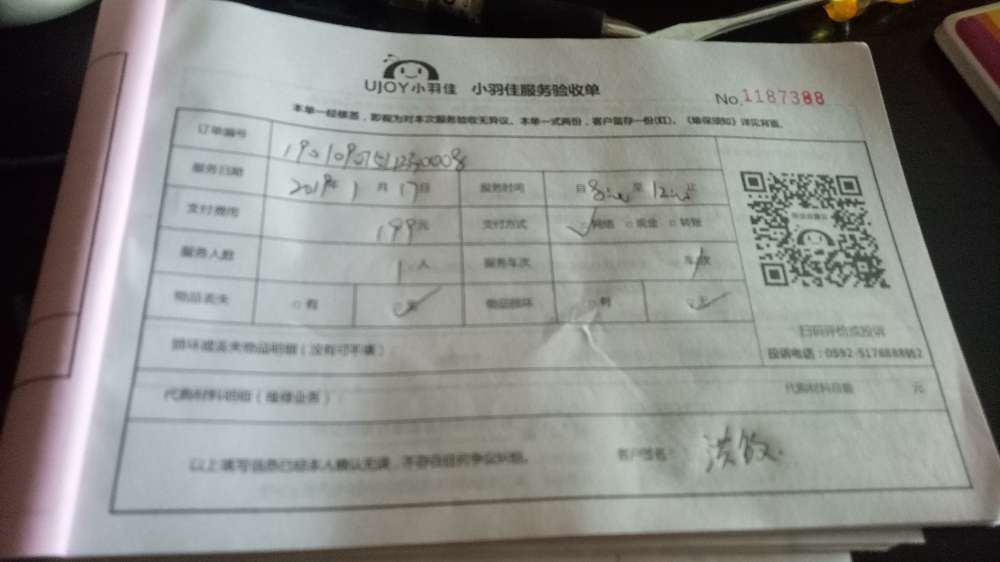 UJOY小羽佳 小羽佳服务验收单
No.1187388
本单一经签署,即视为对本次服务验收无异议。本单一式两份,客户留存一份(红)。《维保须知》详见背面。
订单编号
服务日期 2019年1月17日 服务时间 自8:00至12:00止
支付费用 199元 支付方式 网络 现金 转账
服务人数 1人 服务车次 车次
物品丢失 有 无 物品损坏 有 无
扫码评价或投诉
损坏或丢失物品明细(没有可不填)
代购材料明细(维修业务) 代购材料总额 元
以上填写信息已经本人确认无误,不存在任何争议纠纷。 客户签名: